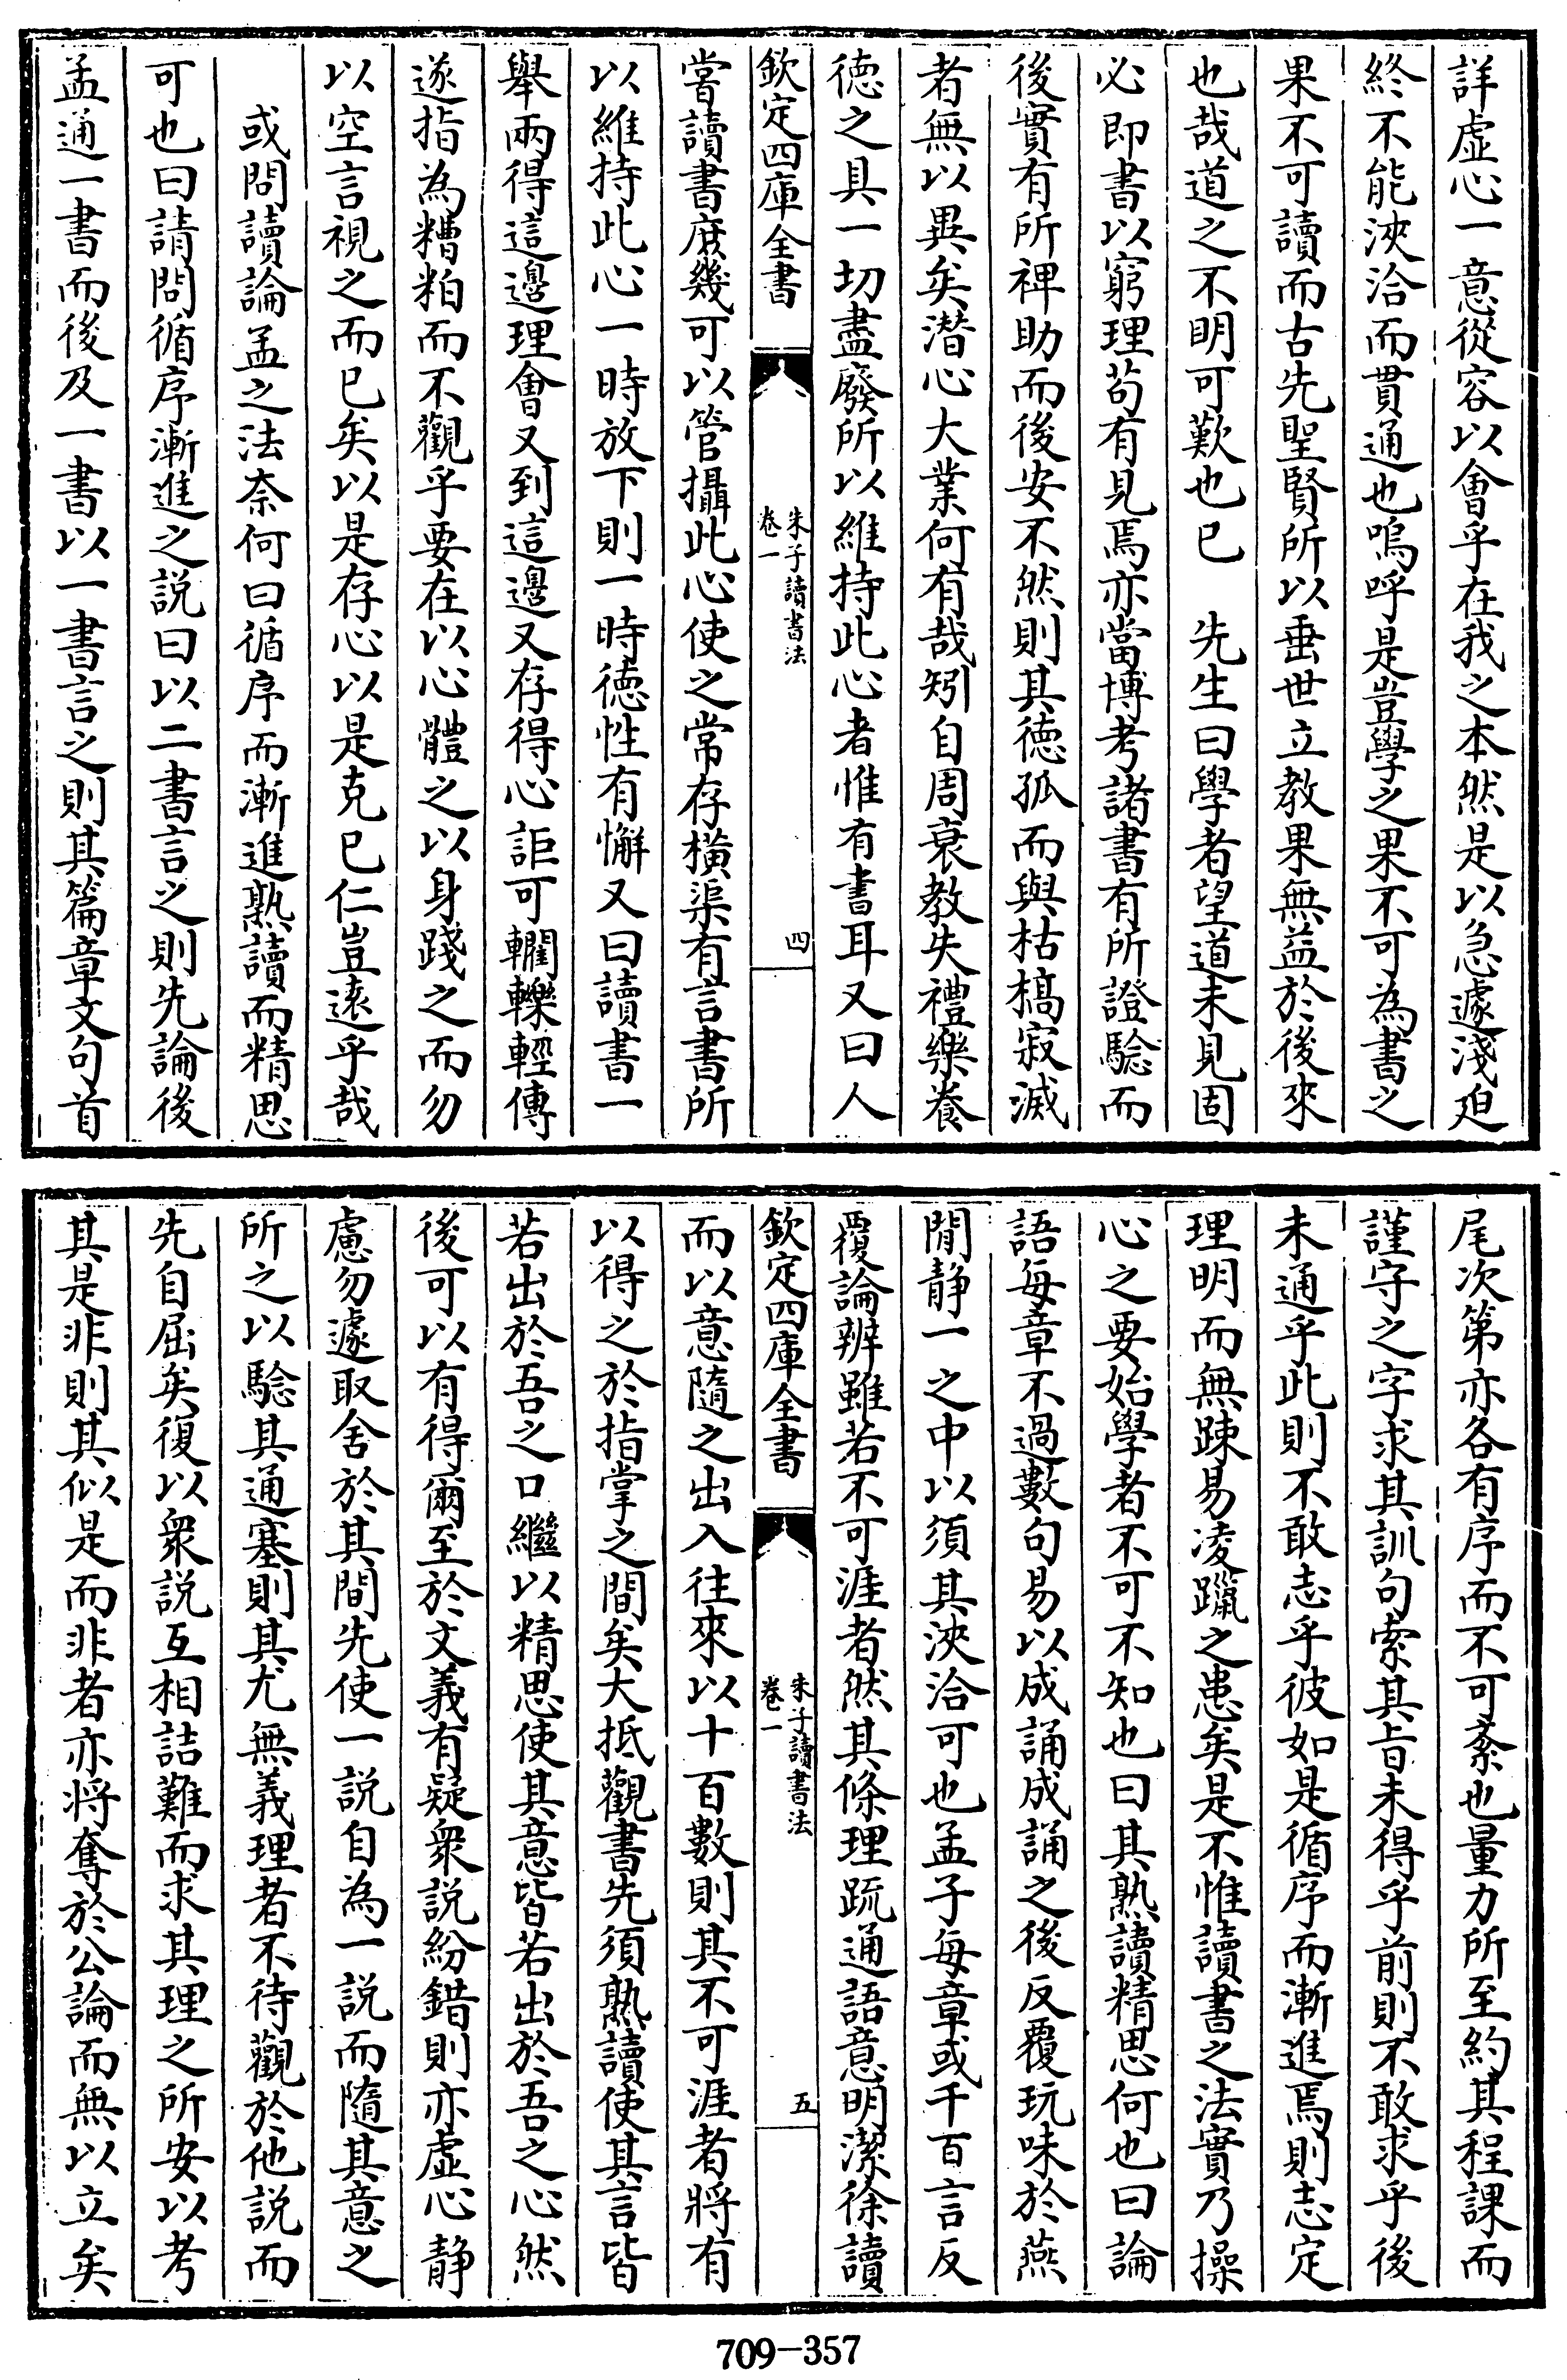 詳虛心一意從容以會乎在我之本然是以急遽淺廹
終不能浹洽而貫通也嗚呼是豈學之果不可為書之
果不可讀而古先聖賢所以垂世立教果無益於後來
也哉道之不明可歎也已　先生曰學者望道未見固
必即書以窮理茍有見焉亦當博考諸書有所證驗而
後實有所裨助而後安不然則其徳孤而與枯槁寂滅
者無以異矣潜心大業何有哉矧自周衰教失禮樂養
徳之具一切盡廢所以維持此心者惟有書耳又曰人
欽定四庫全書
朱子讀書法
卷一
四
嘗讀書庶幾可以管攝此心使之常存橫渠有言書所
以維持此心一時放下則一時徳性有懈又曰讀書一
舉兩得這邊理會又到這邊又存得心詎可轥轢輕傳
遂指為糟粕而不觀乎要在以心體之以身踐之而勿
以空言視之而已矣以是存心以是克已仁豈逺乎哉
或問讀論孟之法奈何曰循序而漸進熟讀而精思
可也曰請問循序漸進之説曰以二書言之則先論後
孟通一書而後及一書以一書言之則其篇章文句首
尾次第亦各有序而不可紊也量力所至約其程課而
謹守之字求其訓句索其旨未得乎前則不敢求乎後
未通乎此則不敢志乎彼如是循序而漸進焉則志定
理明而無踈易凌躐之患矣是不惟讀書之法實乃操
心之要始學者不可不知也曰其熟讀精思何也曰論
語每章不過數句易以成誦成誦之後反覆玩味於燕
閒静一之中以須其浹洽可也孟子每章或千百言反
覆論辨雖若不可涯者然其條理疏通語意明潔徐讀
欽定四庫全書
朱子讀書法
卷一
五
而以意隨之出入往來以十百數則其不可涯者將有
以得之於指掌之間矣大抵觀書先須熟讀使其言皆
若出於吾之口繼以精思使其意皆若出於吾之心然
後可以有得爾至於文義有疑衆説紛錯則亦虛心静
慮勿遽取舍於其間先使一説自為一説而隨其意之
所之以驗其通塞則其尤無義理者不待觀於他説而
先自屈矣復以衆説互相詰難而求其理之所安以考
其是非則其似是而非者亦將奪於公論而無以立矣
709-357